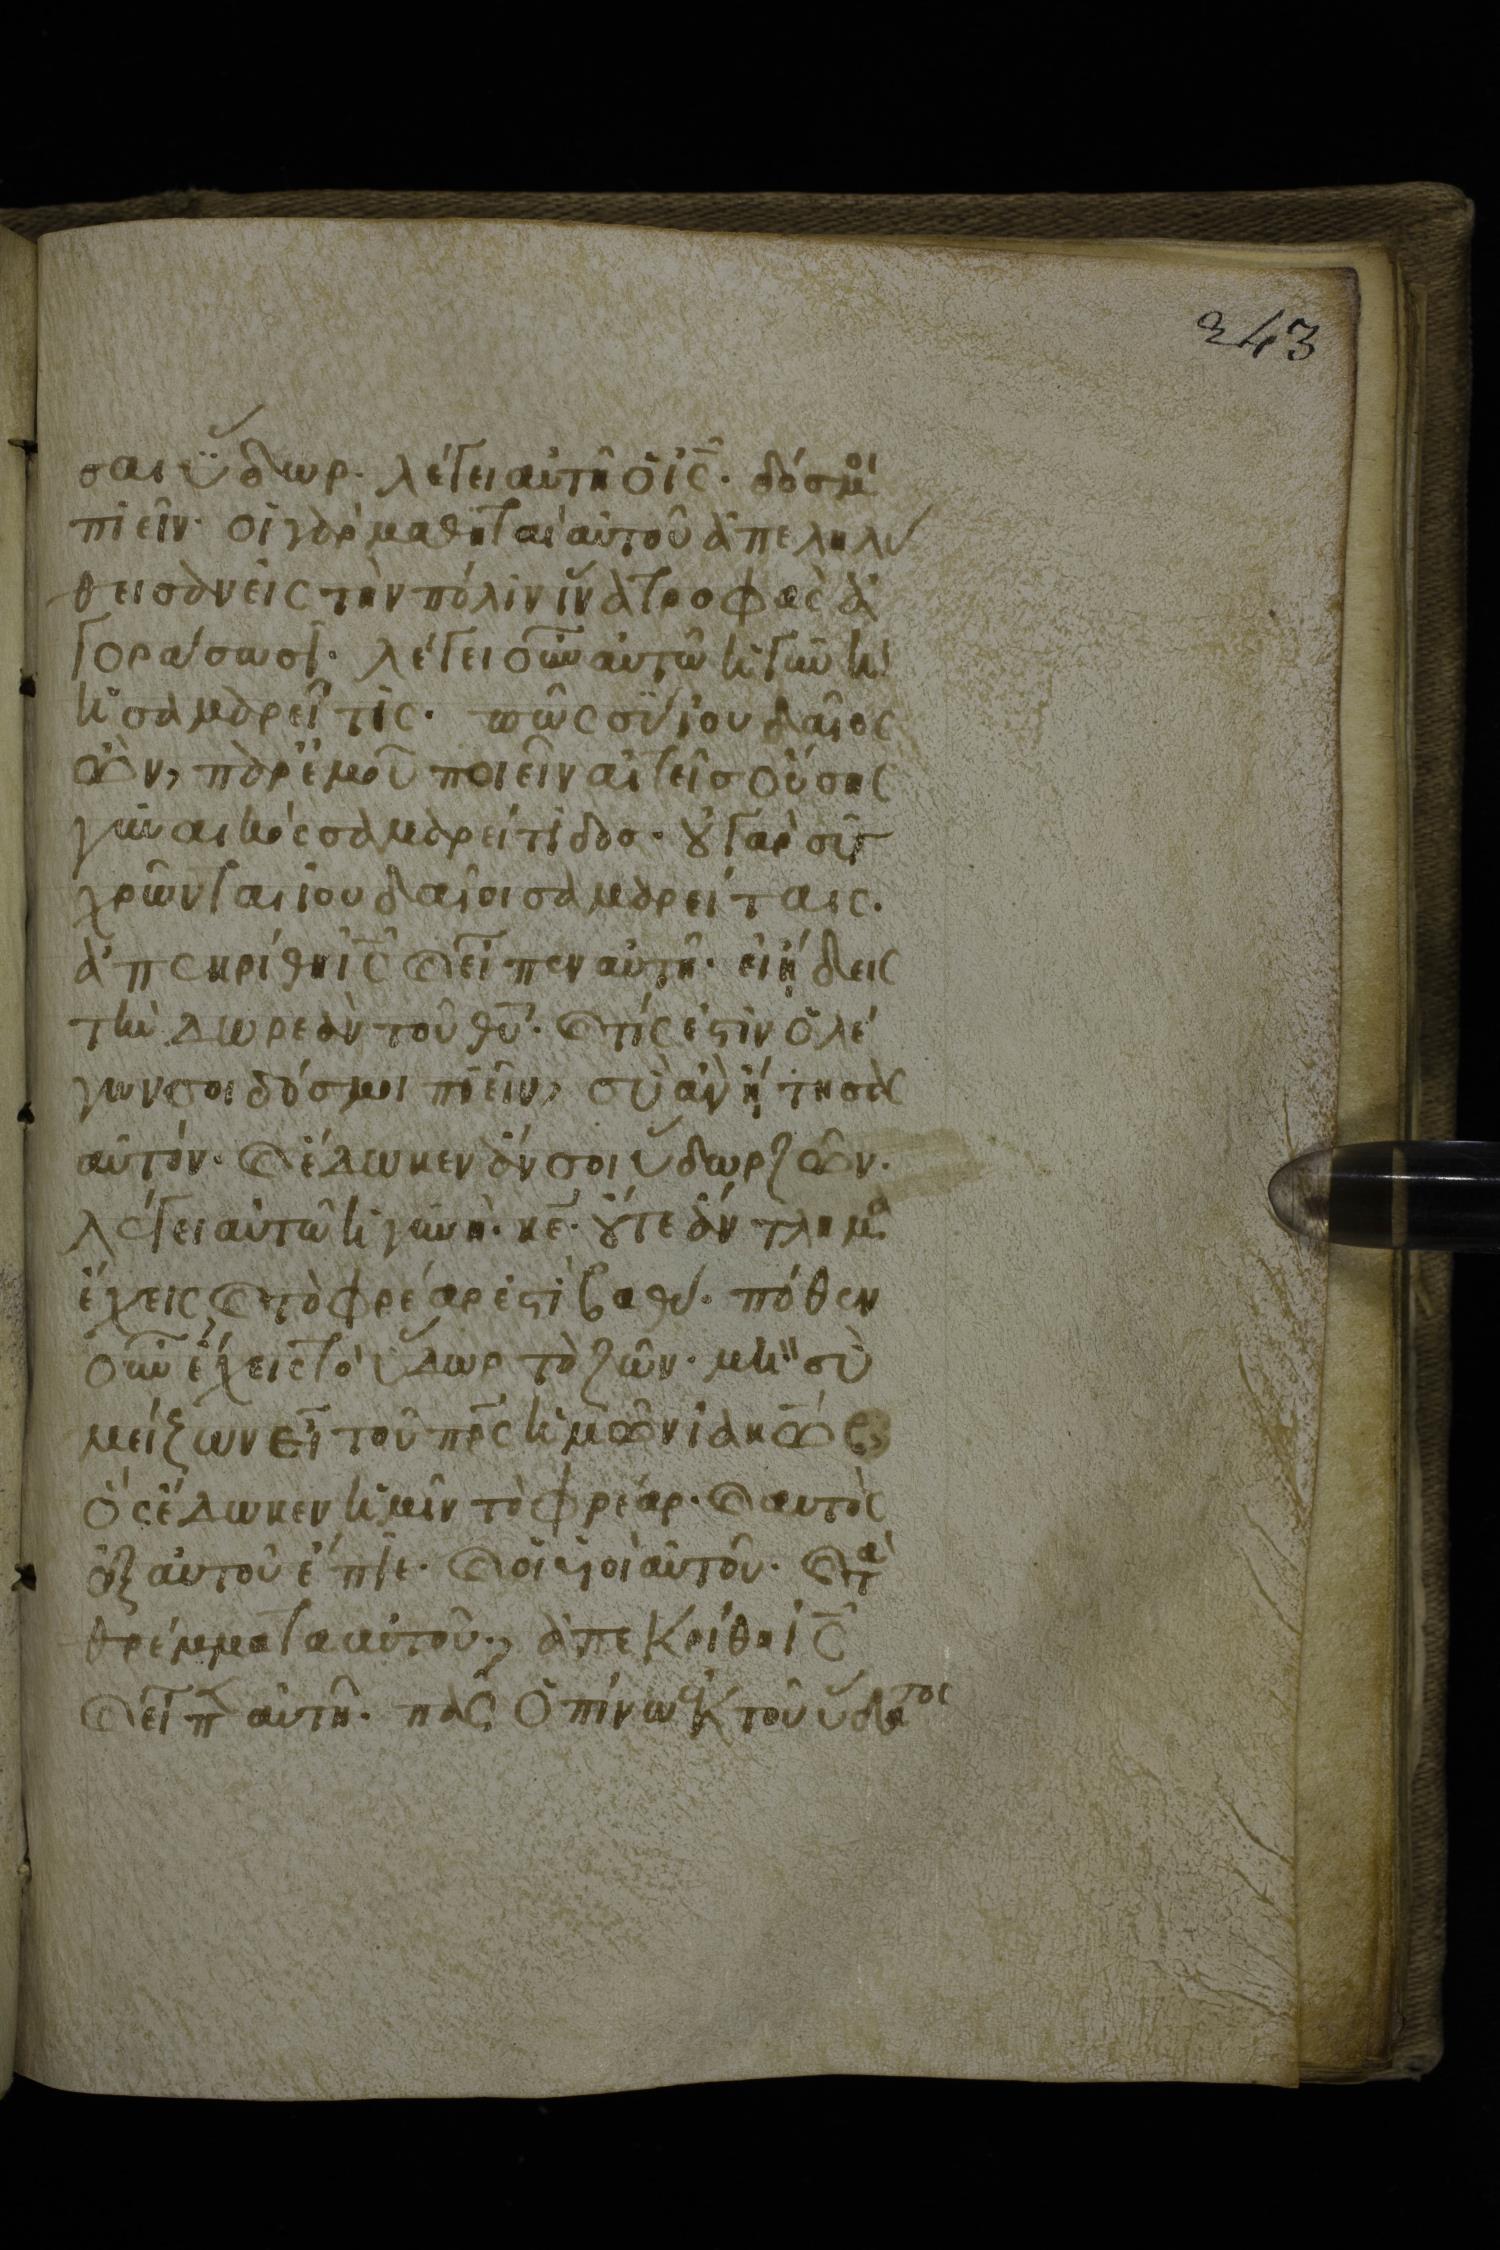 243
σαι ὕδωρ. λέγει αὐτῆ ὁ ἰ̅ς̅. δόσ μοί
πιεῖν. οἱ γὰρ μαθηταὶ αὐτοῦ ἀπεληλύ
θεισαν εἰς τὴν πόλιν ἵνα τροφὰς ἀ
γοράσωσι. λέγει οὖν αὐτῶ ἡ γυνὴ
ἡ σαμαρεῖτις. πῶς σὺ ἰουδαῖος
ὢν, παρ' ἐμοῦ ποιεῖν αἰτεῖσ οὔσης
γυναικὸς σαμαρείτιδοσ. οὐ γὰρ συγ
χρῶνται ἰουδαῖοι σαμαρείταις.
ἀπεκρίθη ἰ̅ς̅ καὶ εἶπεν αὐτῆ. εἰ ἤδεις
τὴν δωρεὰν τοῦ θ̅υ̅. καὶ τίς ἐστιν ὁ λέ
γων σοι δόσ μοι πιεῖν, σὺ ἂν ἤτησας
αὐτόν. καὶ ἔδωκεν ἄν σοι ὕδωρ ζῶν.
λέγει αὐτῶ ἡ γυνὴ. κ̅ε̅. οὔτε ἄντλημα
ἔχεις καὶ τὸ φρέαρ ἐστὶ βαθύ. πόθεν
οὖν ἔχεις τὸ ὕδωρ τὸ ζῶν. μὴ σὺ
μείζων εἶ τοῦ π̅ρ̅ς̅ ἡμῶν ἰακὼβ
ὃς ἔδωκεν ἡμῖν τὸ φρέαρ. καὶ αυτὸς
ἐξ αὐτοῦ ἔπιε. καὶ οἱ υἱοὶ αὐτοῦ. καὶ τὰ
θρέμματα αὐτοῦ., ἀπεκρίθη ἰ̅ς̅
καὶ εἶπεν αὐτῆ. πᾶς ὁ πίνων ἐκ τοῦ ὕδατος